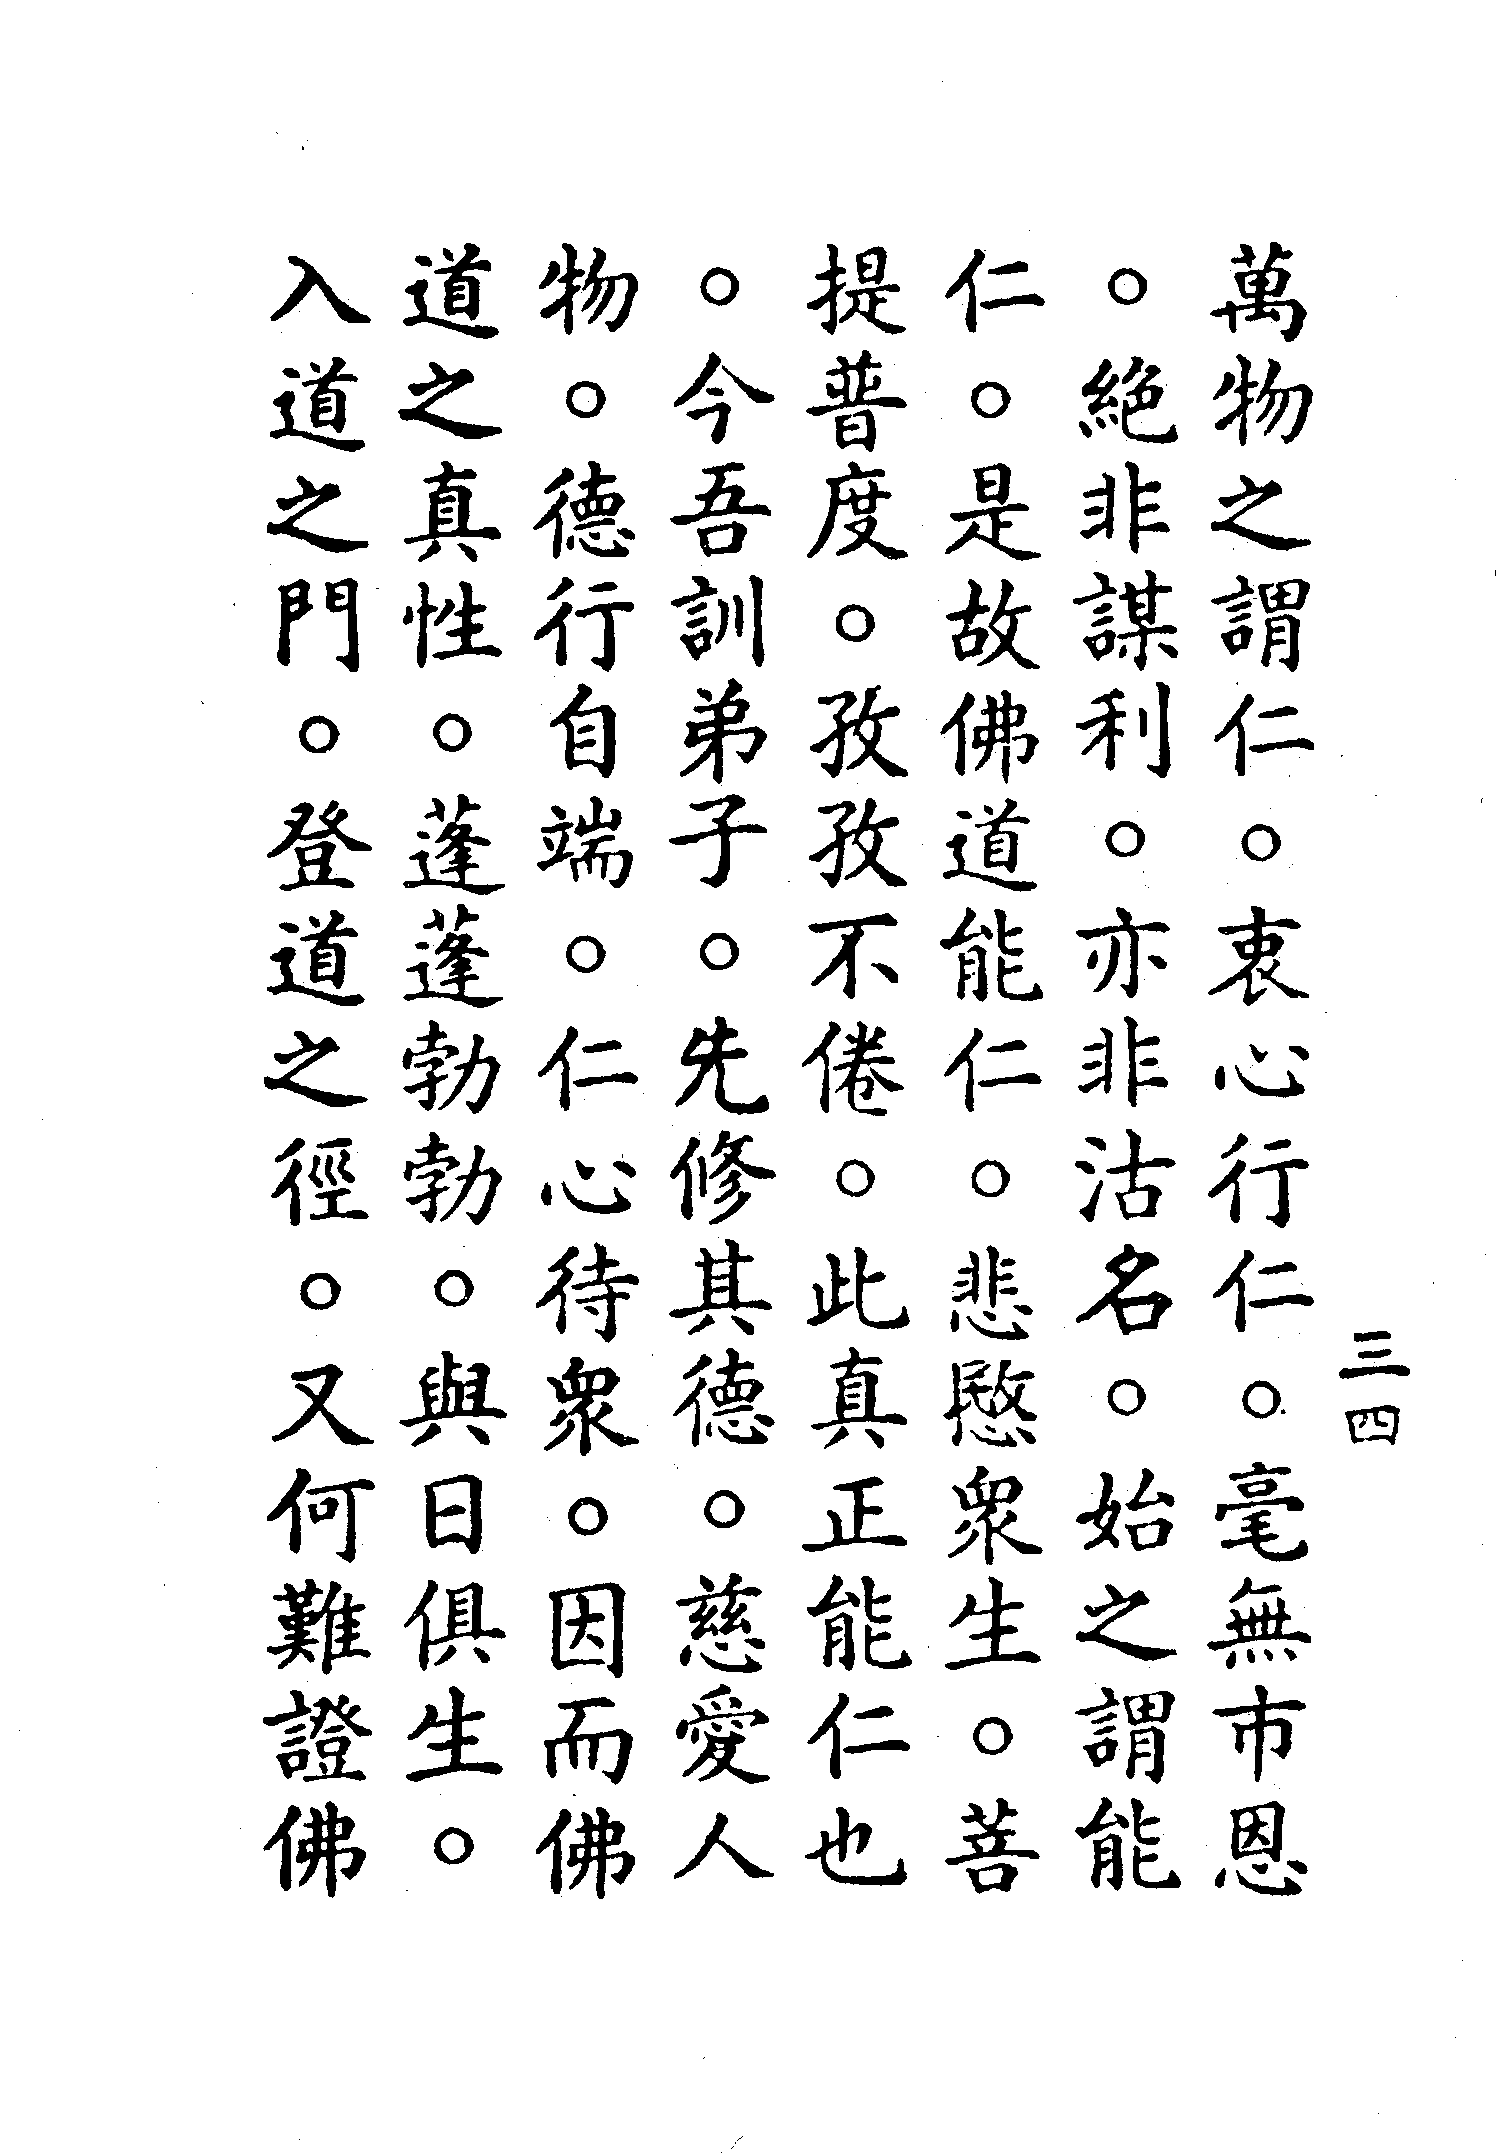 三四
萬物之謂仁。衷心行仁。毫無市恩
。絕非謀利。亦非沽名。始之謂能
仁。是故佛道能仁。悲愍衆生。菩
提普度。孜孜不倦。此真正能仁也
。今吾訓弟子。先修其德。慈愛人
物。德行自端。仁心待衆。因而佛
道之真性。蓬蓬勃勃。與日俱生。
入道之門。登道之徑。又何難證佛